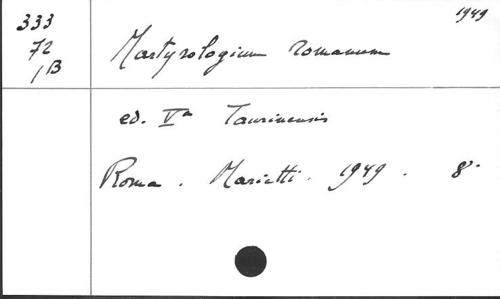 333
72
1B
1949
Martyrologium romanum
ed. Va Taurinensis
Roma . Marietti . 1949 . 8°